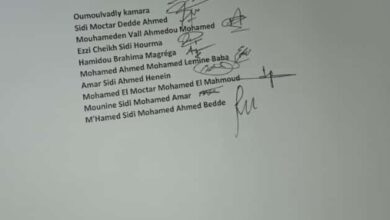 Oumoulvadly kamara
Sidi Moctar Dedde Ahmed
Mouhameden Vall Ahmedou Mohamed
Ezzi Cheikh Sidi Hourma
Hamidou Brahima Magréga
Mohamed Ahmed Mohamed Lemine Baba
Amar Sidi Ahmed Henein
Mohamed El Moctar Mohamed El Mahmoud
Mounine Sidi Mohamed Amar
M'Hamed Sidi Mohamed Ahmed Bedde